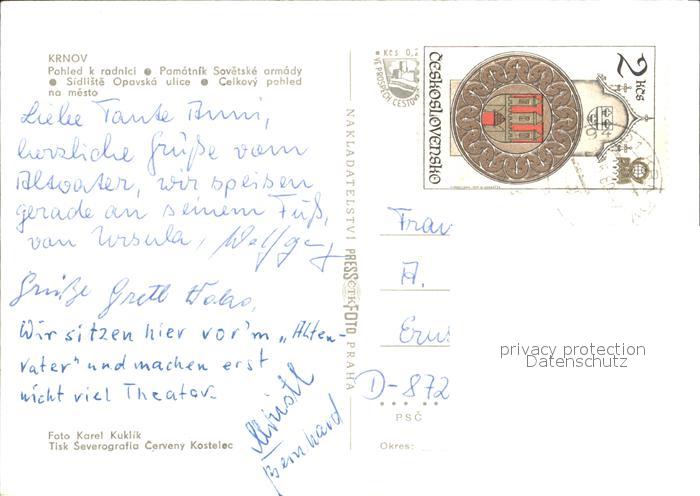 KRNOV
Pohled k radnici ● Památník Sovětské armády
● Sídliště Opavská ulice ● Celkový pohled
na město
Liebe Tante Anni,
herzliche Grüße vom
Altvater, wir speisen
gerade an seinem Fuß,
von Ursula, Wolfgang
Grüße Gretl
Wir sitzen hier vor'm „Alten-
vater" und machen erst
nicht viel Theater.
Christl
Bernhard
Foto Karel Kuklík
Tisk Severografia Červený Kostelec
NAKLADATELSTVÍ PRESSFOTO PRAHA
ČTK
Kčs 0,2
VE PROSPĚCH ČESTO
ČESKOSLOVENSKO
2 Kčs
Frau
A.
D-872
PSČ
Okres:
privacy protection
Datenschutz